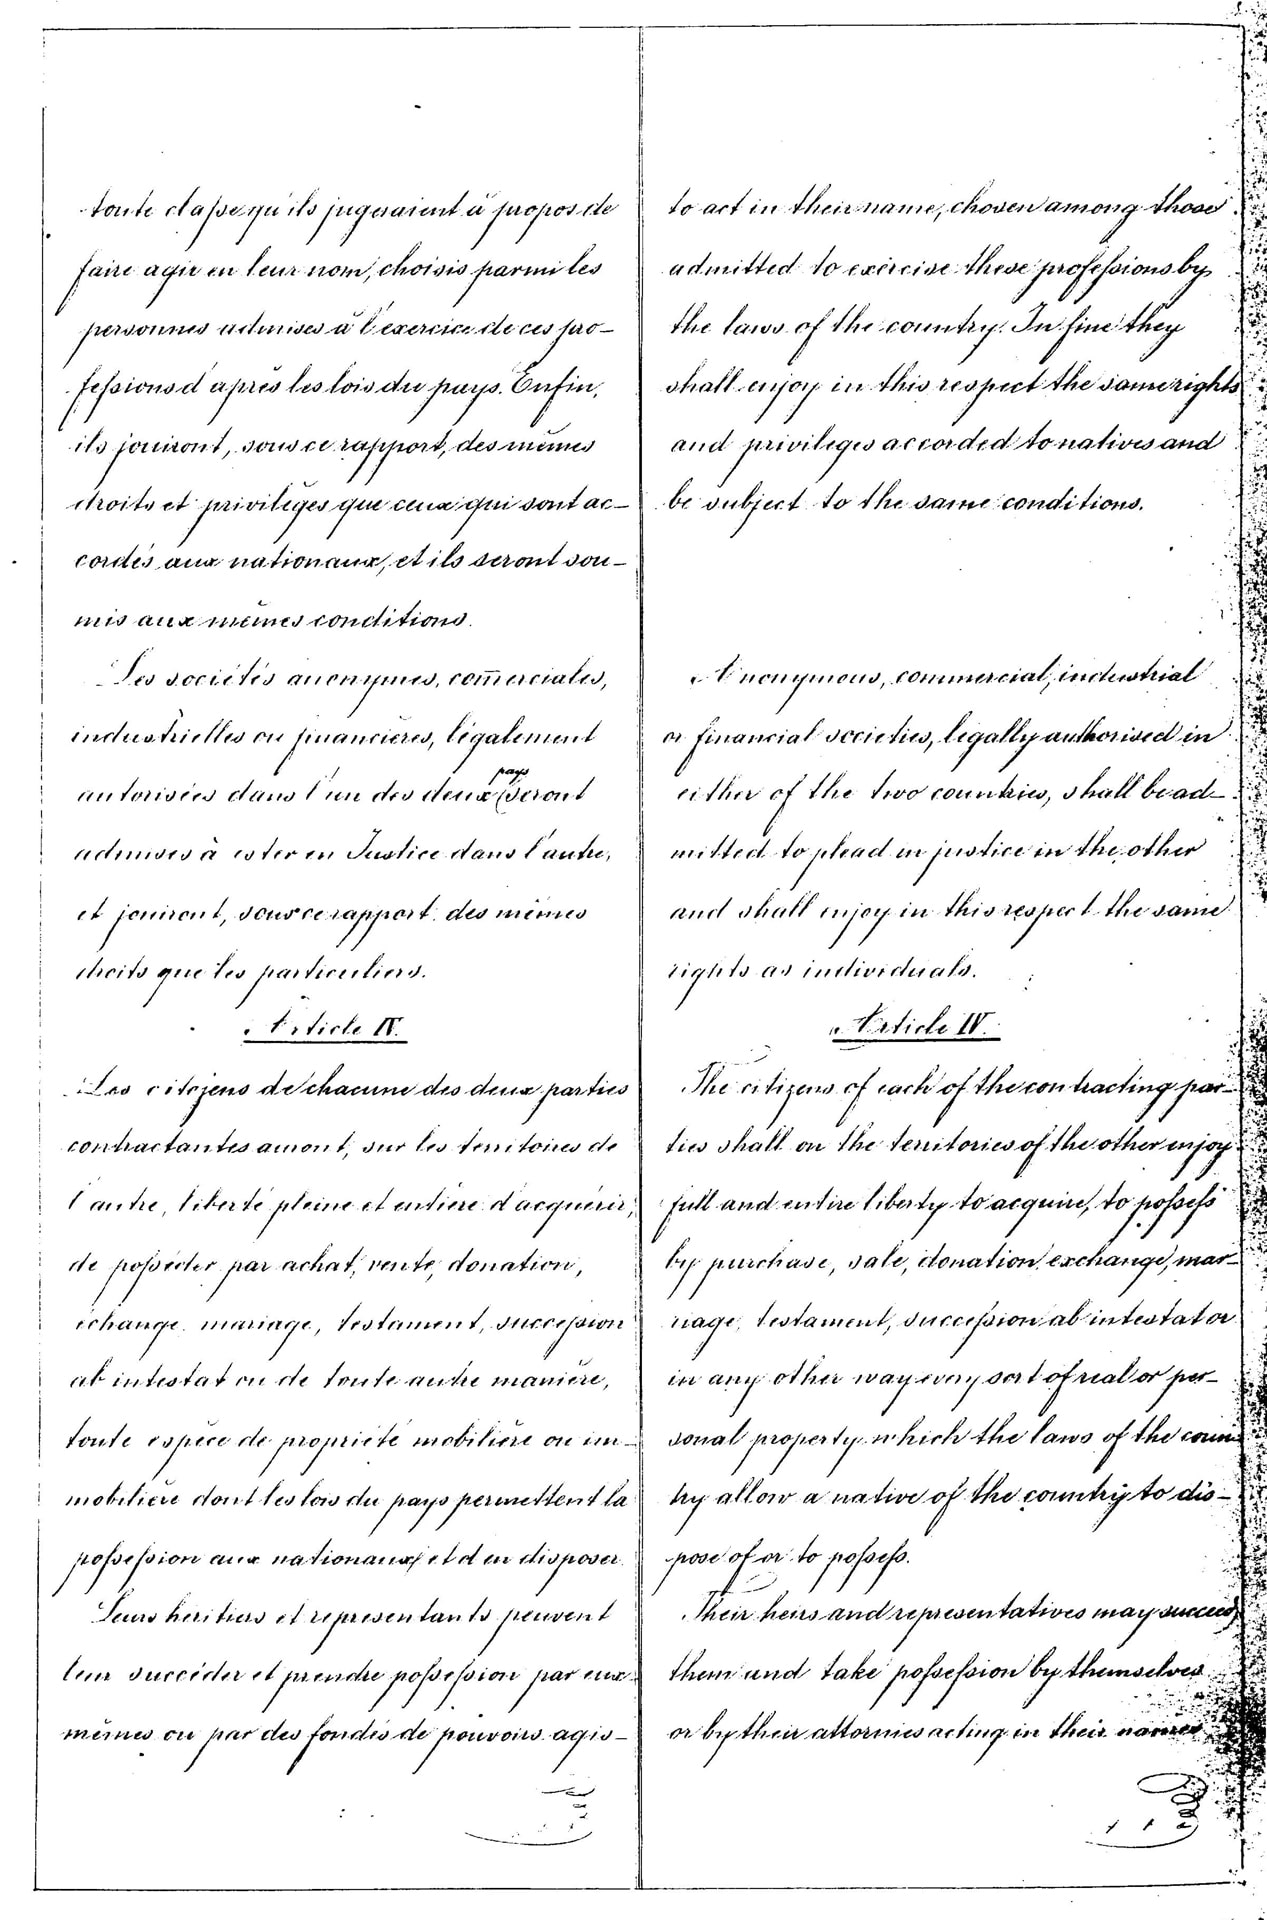 toute classe qu'ils jugeraient à propos de
faire agir en leur nom, choisis parmi les
personnes admises à l'exercice de ces pro-
fessions d'après les lois du pays. Enfin,
ils jouiront, sous ce rapport, des mêmes
droits et privilèges que ceux qui sont ac-
cordés aux nationaux, et ils seront sou-
mis aux mêmes conditions.
Les sociétés anonymes, commerciales,
industrielles ou financières, légalement
autorisées dans l'un des deux pays seront
admises à ester en Justice dans l'autre,
et jouiront, sous ce rapport, des mêmes
droits que les particuliers.
Article IV.
Les citojens de chacune des deux parties
contractantes auront, sur les territoires de
l'autre, liberté pleine et entière d'acquérir,
de posséder par achat, vente, donation,
échange, mariage, testament, succession
ab intestat ou de toute autre manière,
toute espèce de propriété mobilière ou im-
mobilière dont les lois du pays permettent la
possession aux nationaux, et d'en disposer.
Leurs héritiers et représentants peuvent
leur succéder et prendre possession par eux-
mêmes ou par des fondés de pouvoirs agis-
to act in their name, chosen among those
admitted to exercise these professions by
the laws of the country. In fine they
shall enjoy in this respect the same rights
and privileges accorded to natives and
be subject to the same conditions.
Anonymous, commercial, industrial
or financial societies, legally authorised in
either of the two countries, shall be ad-
mitted to plead in justice in the other
and shall enjoy in this respect the same
rights as individuals.
Article IV.
The citizens of each of the contracting par-
ties shall on the territories of the other enjoy
full and entire liberty to acquire, to possess
by purchase, sale, donation, exchange, mar-
riage, testament, succession ab intestat or
in any other way every sort of real or per-
sonal property which the laws of the coun-
try allow a native of the country to dis-
pose of or to possess.
Their heirs and representatives may succeed
them and take possession by themselves
or by their attornies acting in their names